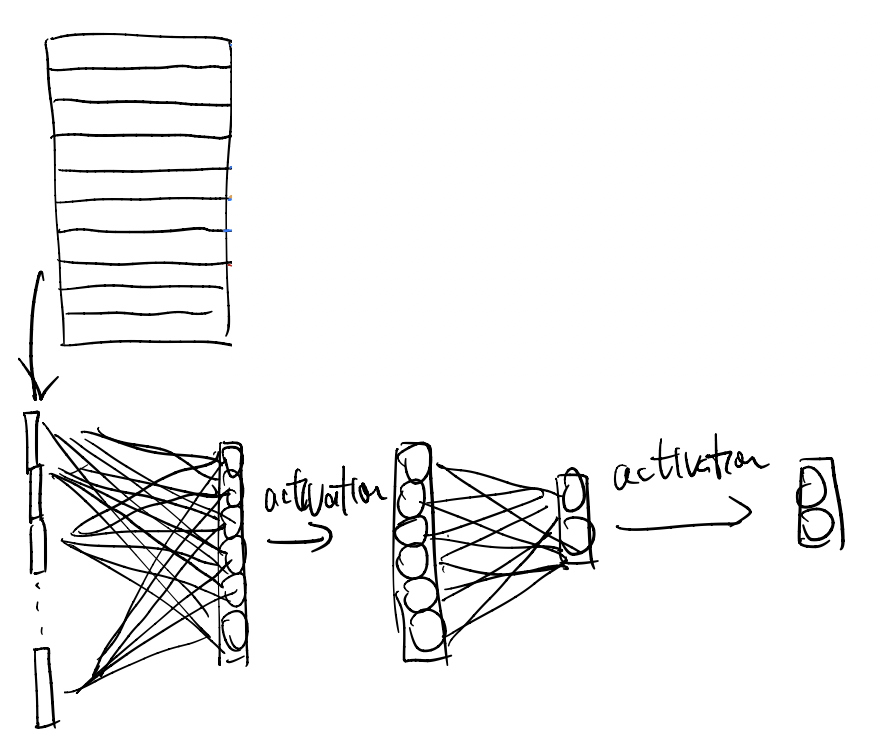 activation
activation